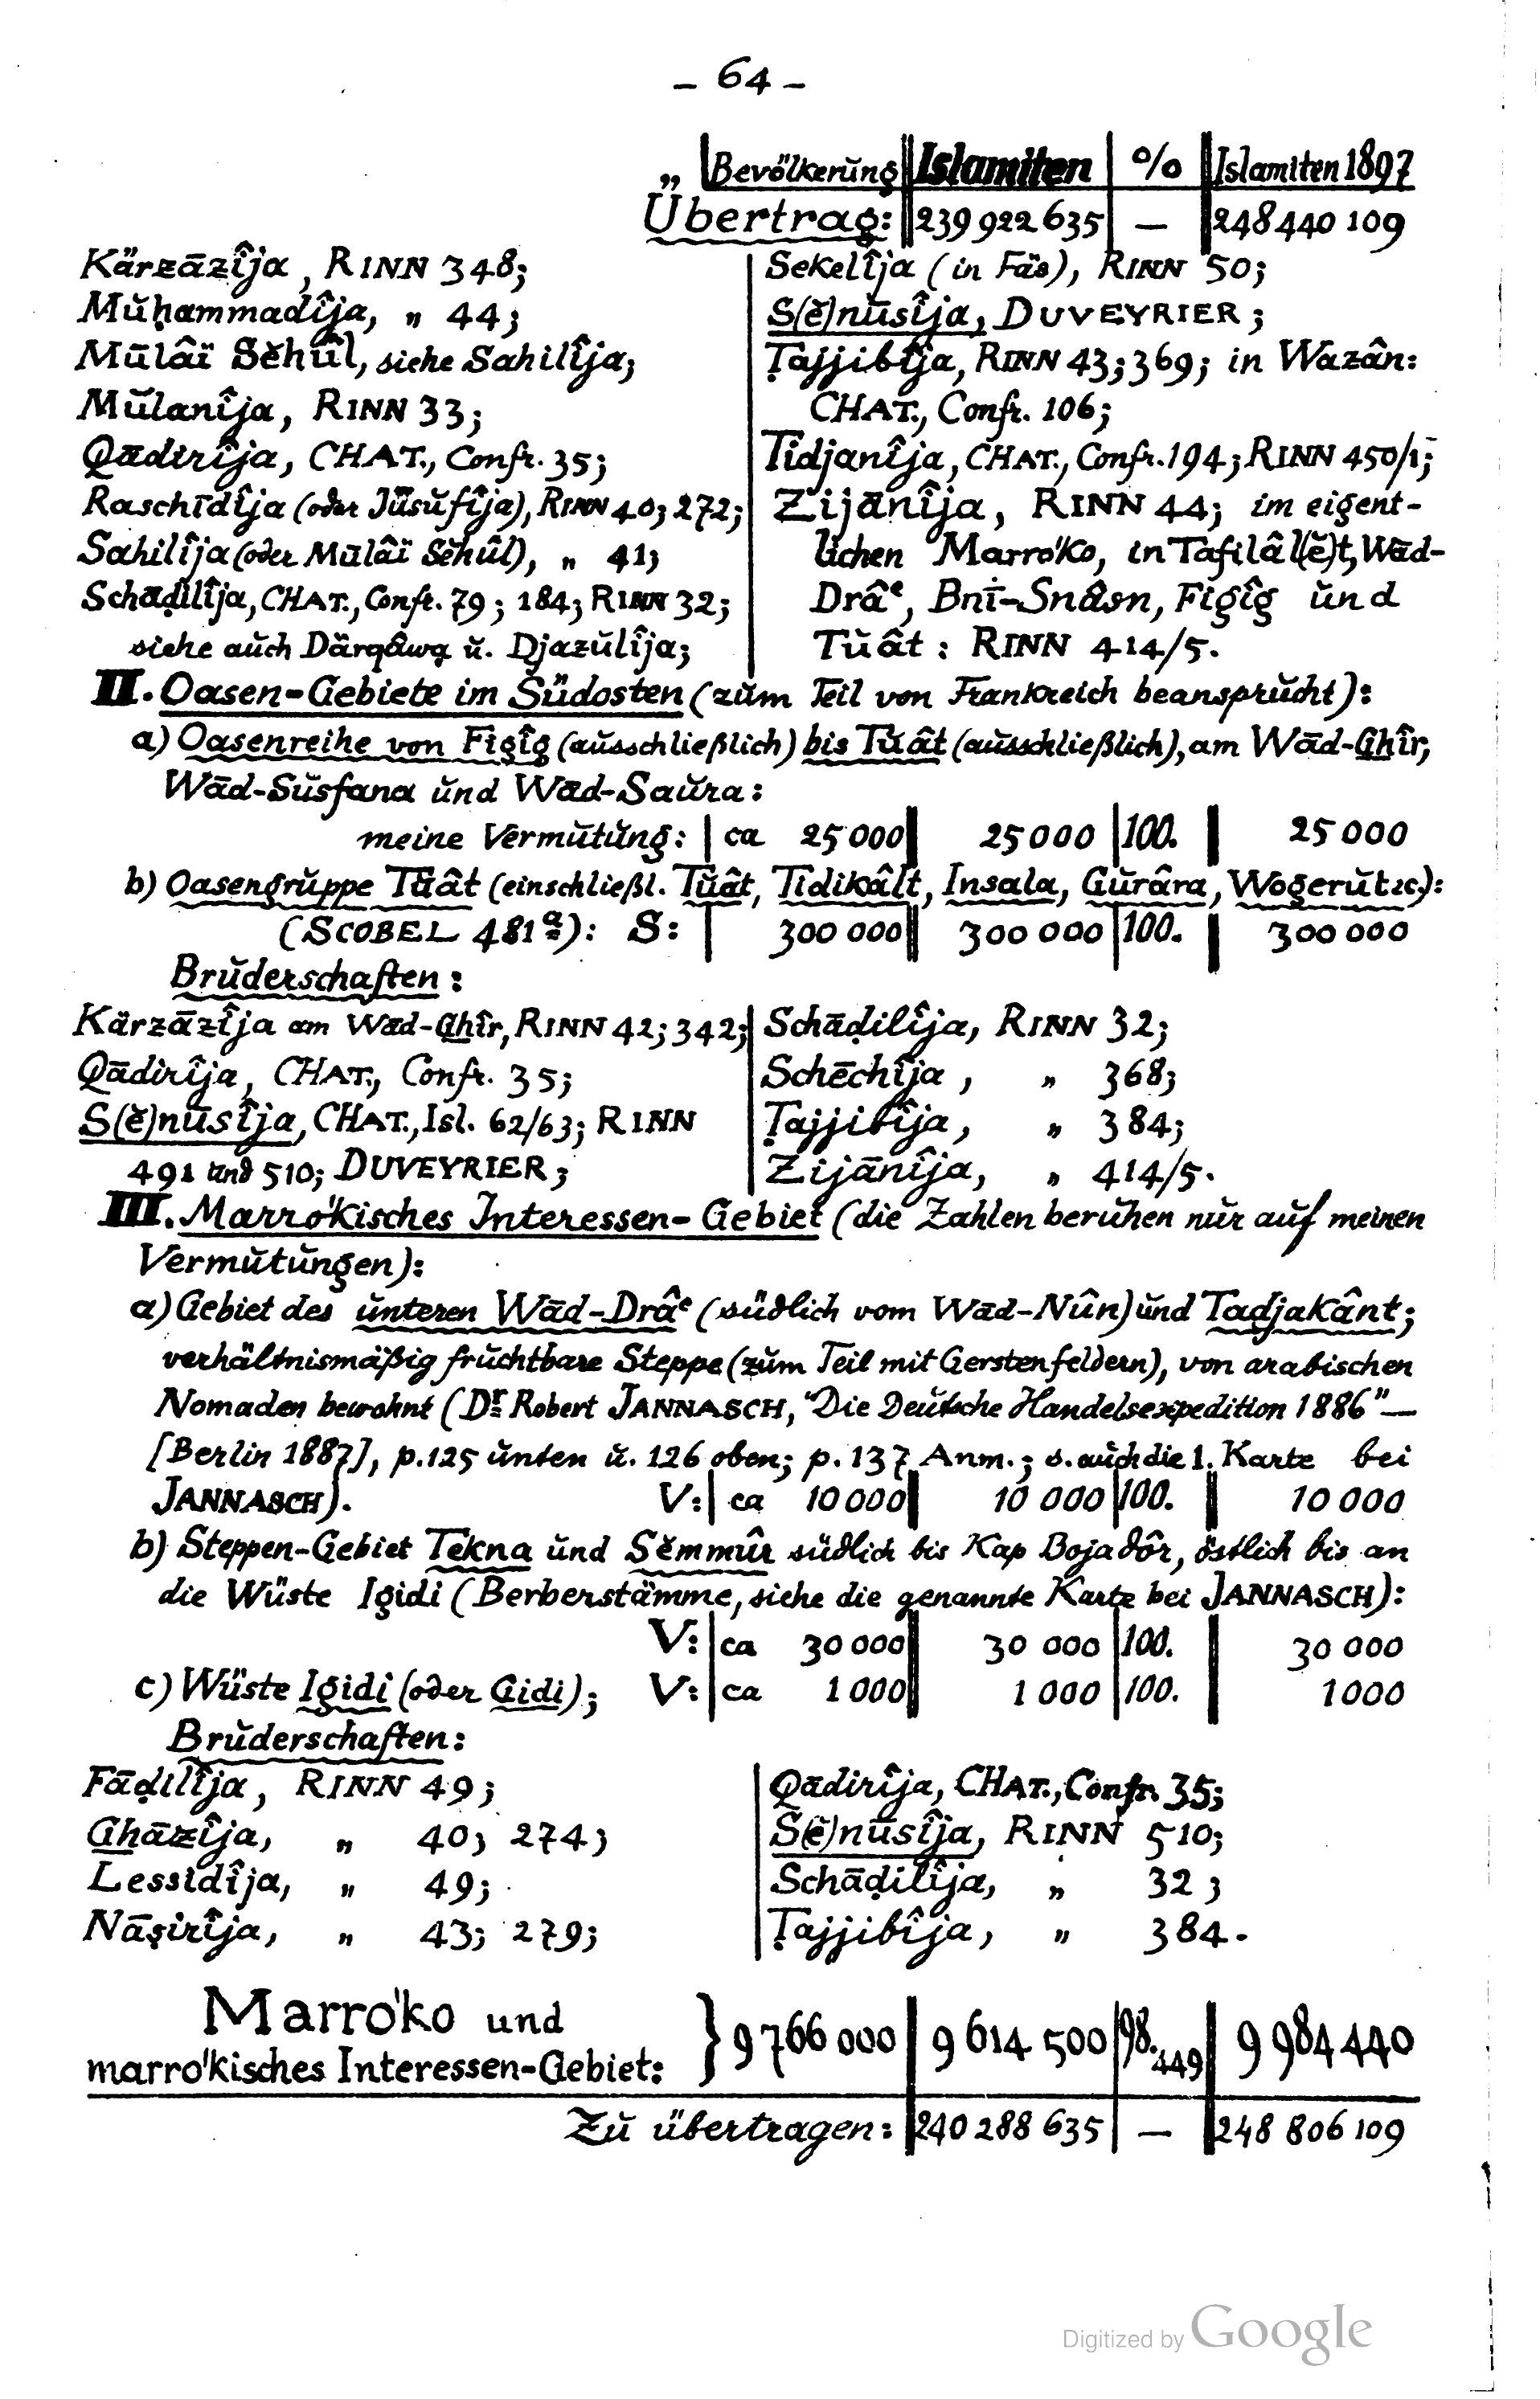 – 64 –
Bevölkerŭng Islamiten % Islamiten 1897
Übertrag: 239 922 635 — 248 440 109
Kärzāzîja, RINN 348;
Mŭḥammadîja, „ 44;
Mūlâï Sĕhûl, siehe Sahilîja;
Mŭlanîja, RINN 33;
Qādirîja, CHAT., Confr. 35;
Raschīdîja (oder Jūsŭfîja), RINN 40; 272;
Sahilîja (oder Mūlâï Sĕhûl), „ 41;
Schāḍilîja, CHAT., Confr. 79; 184; RINN 32;
siehe aŭch Därqâwa ŭ. Djazŭlîja;
Sekelîja (in Fâs), RINN 50;
S(ĕ)nūsîja, DUVEYRIER;
Ṭajjibîja, RINN 43; 369; in Wazân:
CHAT., Confr. 106;
Tidjanîja, CHAT., Confr. 194; RINN 450/1;
Zijānîja, RINN 44; im eigent-
lichen Marro'ko, in Tafilâl(ĕ)t, Wād-
Drâᶜ, Bnī-Snâsn, Figîg ŭnd
Tŭât: RINN 414/5.
II. Oasen-Gebiete im Südosten (zŭm Teil von Frankreich beansprŭcht):
a) Oasenreihe von Figîg (aŭsschließlich) bis Tŭât (aŭsschließlich), am Wād-Ghîr,
Wād-Sŭsfana ŭnd Wād-Saŭra:
meine Vermŭtŭng: ca 25 000 25 000 100. 25 000
b) Oasengrŭppe Tŭât (einschließl. Tŭât, Tidikâlt, Insala, Gŭrâra, Wogerŭt ꝛc.):
(SCOBEL 481ª): S: 300 000 300 000 100. 300 000
Brŭderschaften:
Kärzāzîja am Wād-Ghîr, RINN 42; 342;
Qādirîja, CHAT., Confr. 35;
S(ĕ)nūsîja, CHAT., Isl. 62/63; RINN
491 ŭnd 510; DUVEYRIER;
Schāḍilîja, RINN 32;
Schēchîja, „ 368;
Ṭajjibîja, „ 384;
Zijānîja, „ 414/5.
III. Marro'kisches Interessen-Gebiet (die Zahlen berŭhen nŭr aŭf meinen
Vermŭtŭngen):
a) Gebiet des ŭnteren Wād-Drâᶜ (südlich vom Wād-Nûn) ŭnd Tadjakânt;
verhältnismäßig frŭchtbare Steppe (zŭm Teil mit Gerstenfeldern), von arabischen
Nomaden bewohnt (Dr Robert JANNASCH, "Die Deŭtsche Handelsexpedition 1886" —
[Berlin 1887], p. 125 ŭnten ŭ. 126 oben; p. 137 Anm.; s. aŭch die 1. Karte bei
JANNASCH). V: ca 10 000 10 000 100. 10 000
b) Steppen-Gebiet Tekna ŭnd Sĕmmûr südlich bis Kap Bojadôr, östlich bis an
die Wüste Igidi (Berberstämme, siehe die genannte Karte bei JANNASCH):
V: ca 30 000 30 000 100. 30 000
c) Wüste Igidi (oder Gidi); V: ca 1 000 1 000 100. 1000
Brŭderschaften:
Fāḍilîja, RINN 49;
Ghāzîja, „ 40; 274;
Lessidîja, „ 49;
Nāṣirîja, „ 43; 279;
Qādirîja, CHAT., Confr. 35;
S(ĕ)nūsîja, RINN 510;
Schāḍilîja, „ 32;
Ṭajjibîja, „ 384.
Marro'ko und
marro'kisches Interessen-Gebiet: } 9 766 000 9 614 500 98.449 9 984 440
Zŭ übertragen: 240 288 635 — 248 806 109
Digitized by Google